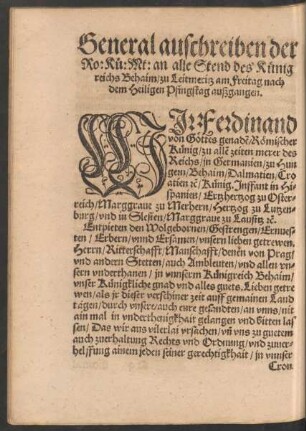 General außschreiben der
Ro: Kü: Mt: an alle Stend des Künig
reichs Behaim / zu Leitmeritz am Freitag nach
dem Heiligen Pfingstag außgangen.
WIr Ferdinand
von Gottes genadē / Römischer
Künig / zu allē zeiten merer des
Reichs / in Germanien / zu Hun
gern / Behaim / Dalmatien / Cro
atien ꝛc / Künig. Infant in Hi-
spanien / Ertzhertzog zu Oster-
reich / Marggraue zu Merhern / Hertzog zu Lutzen-
burg / vnd in Slesien / Marggraue zu Lausitz ꝛc.
Entpieten den Wolgebornen / Gestrengen / Ernues-
ten / Erbern / vnnd Ersamen / vnsern lieben getrewen,
Herrn / Ritterschafft / Manschafft / denen von Prag /
vnd andern Stetten / auch Ambleuten / vnd allen vn-
sern vnderthanen / in vnnserm Künigreich Behaim /
vnser Künigkliche gnad vnd alles guets, Lieben getre
wen / als jr dieser verschiner zeit auff gemainen Land
tägen / durch vnsere / auch eure gesandten / an vnns / nit
ain mal in vnderthanigkhait gelangen vnd bitten las
sen / Das wir aus vilerlai vrsachen / vñ vns zu guetem
auch zuerhaltung Rechts vnd Ordnung / vnd zuuer-
helffung ainem jeden seiner gerechtigkhait / in vnnser
Cron